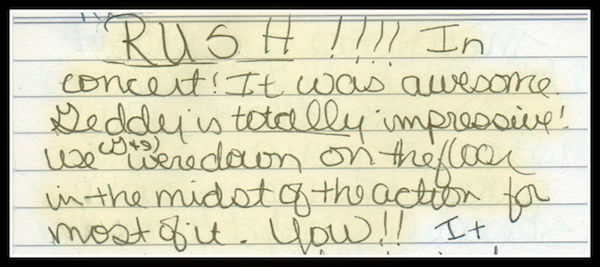 RUSH !!!! In
concert! It was awesome.
Geddy is totally impressive!
We (J+S) were down on the floor
in the midst of the action for
most of it. Yow!! It